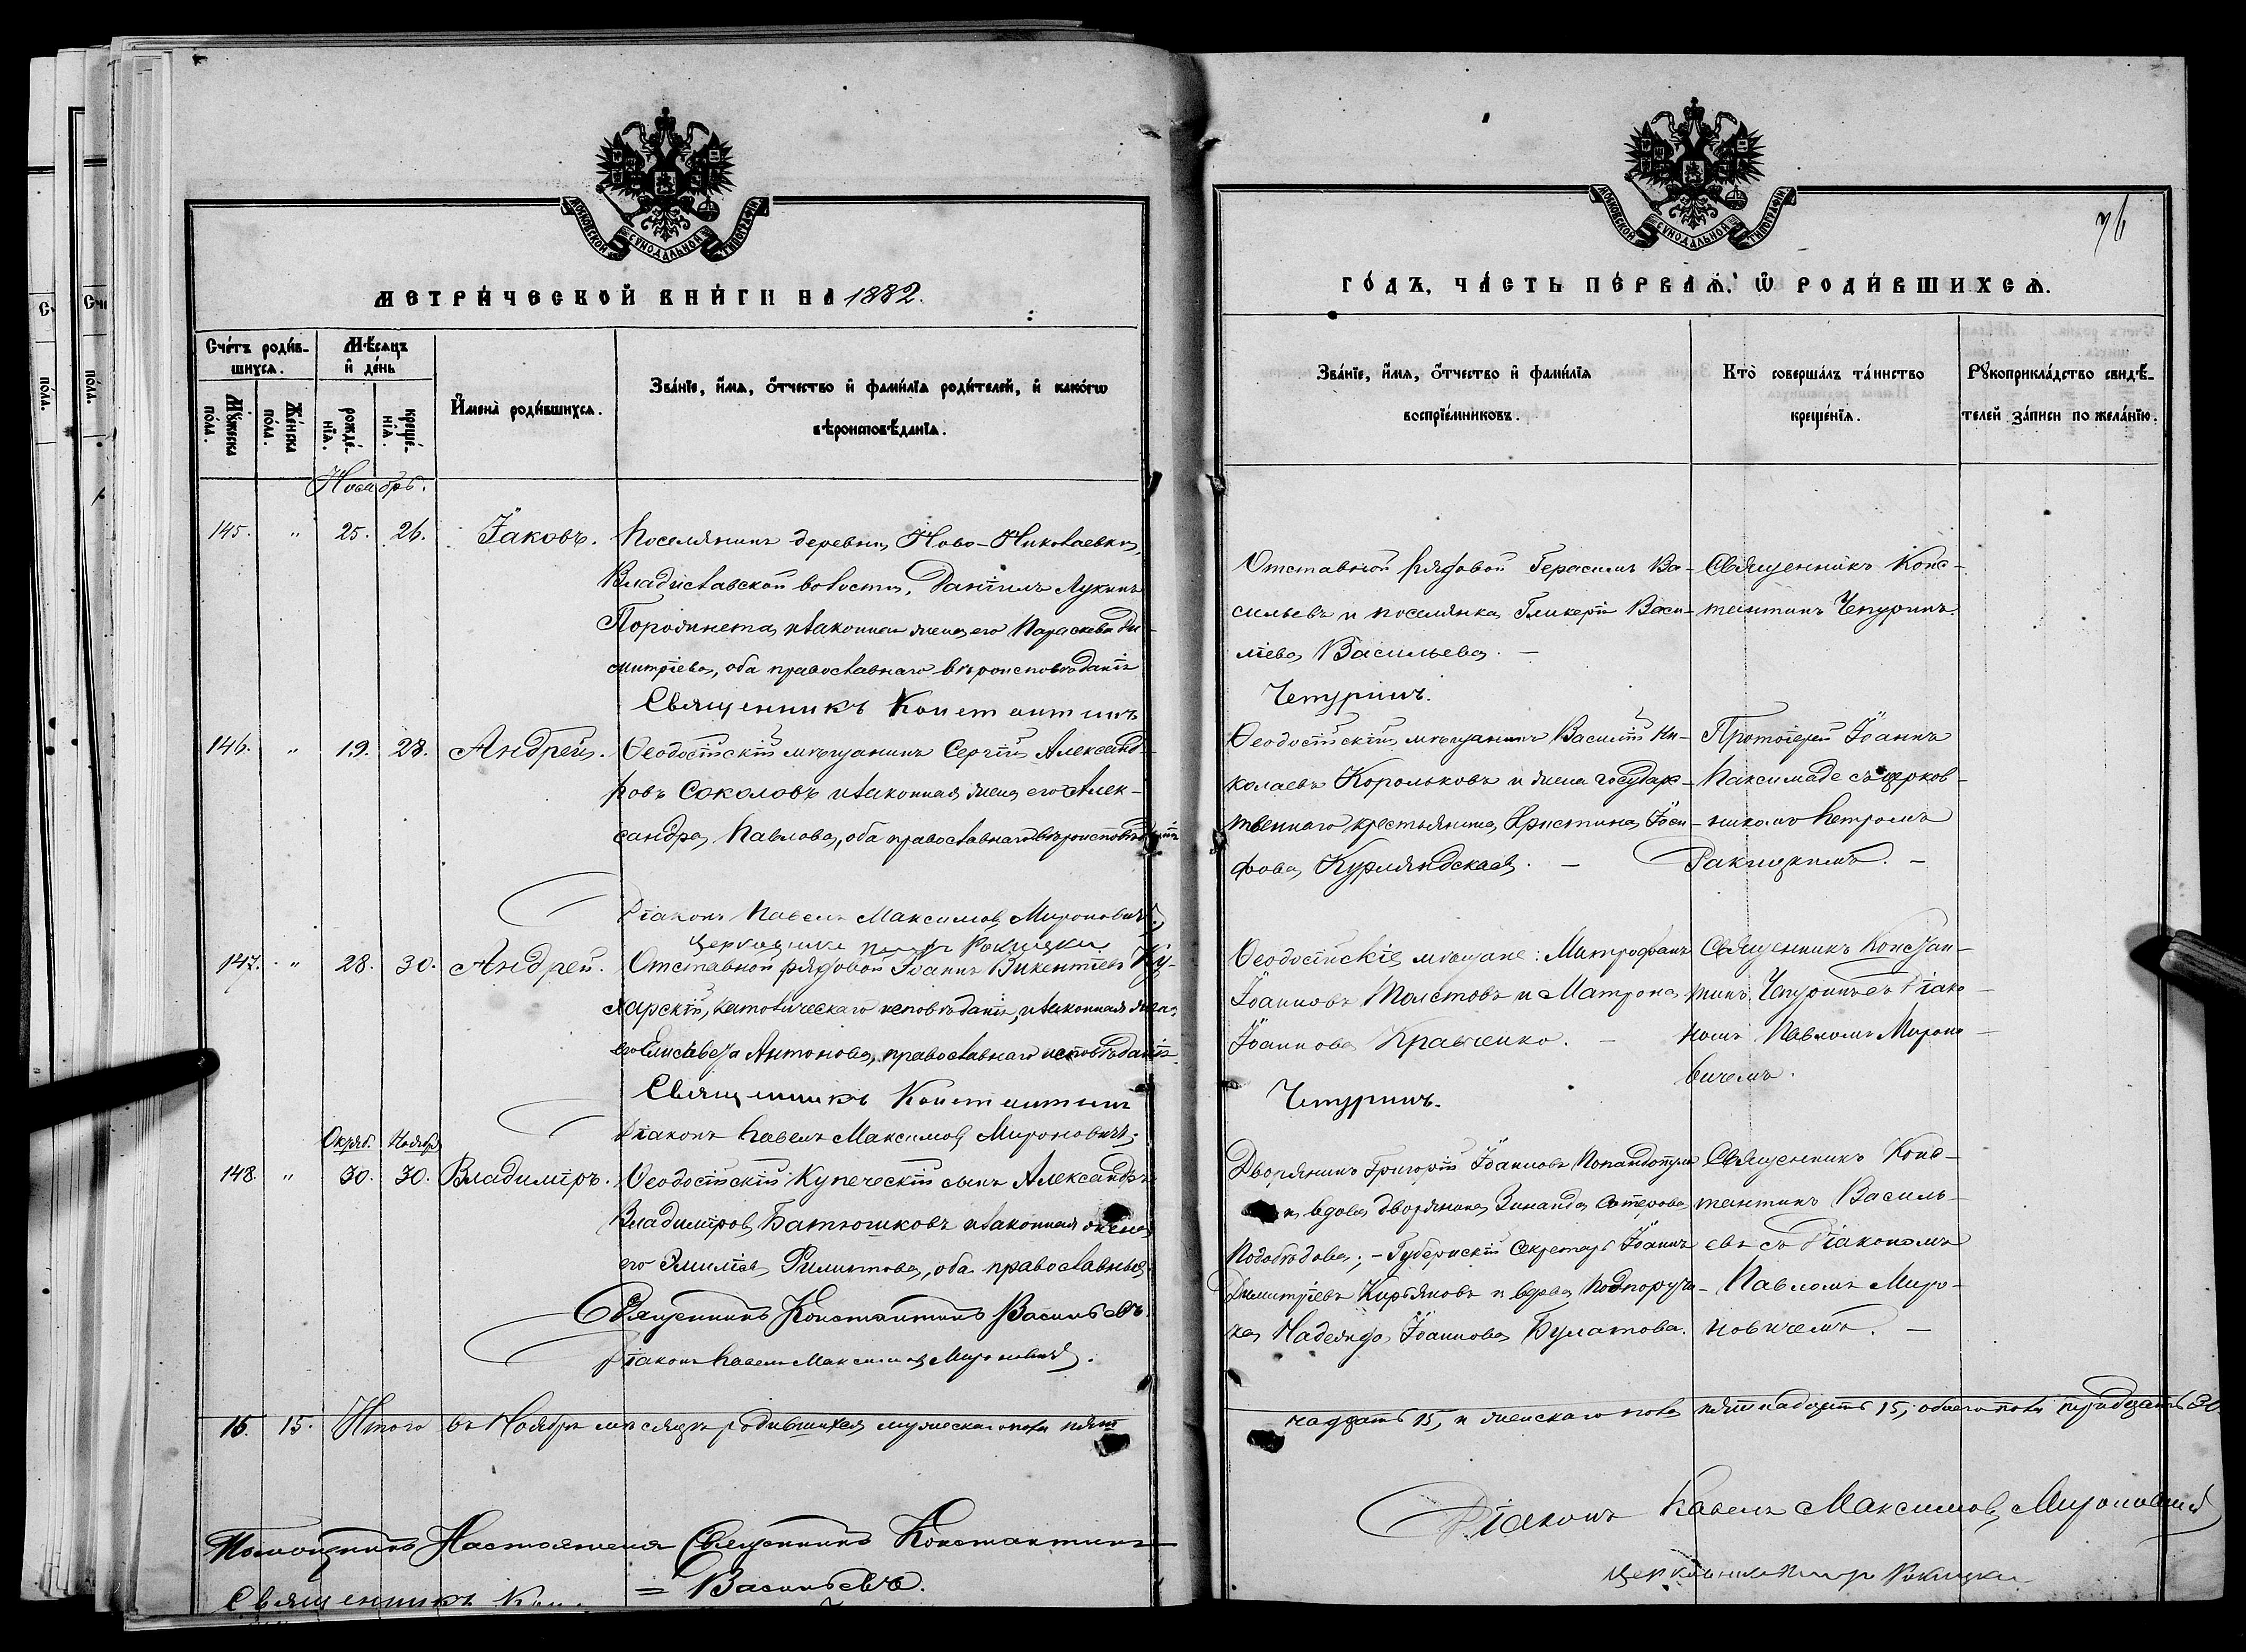 МОСКОВСКОЙ СѴНОДАЛЬНОЙ ТИПОГРАФІИ
МЕТРИ́ЧЕСКОЙ КНИ́ГИ НА 1882.
Сче́тъ роди́вшихся.
Мѣ́сяцъ и де́нь
Му́жеска по́ла.
Же́нска по́ла.
рожде́нїѧ.
креще́нїѧ.
Имена̀ роди́вшихсѧ.
Зва́нїе, и́мѧ, ѻ҆́тчество и фами́лїѧ роди́телей, и како́гѡ
вѣроисповѣ́данїѧ.
Ноябрь.
145. " 25. 26. Іаковъ. Поселянинъ деревни Ново-Николаевки,
Владиславской волости, Даніилъ Лукинъ
и законная жена его Параскева Ди-
митріева, оба православнаго вѣроисповѣданія
Священникъ Константинъ
146. " 19. 28. Андрей. Ѳеодосійскій мѣщанинъ Сергій Александ-
ровъ Соколовъ и законная жена его Алек-
сандра Павлова, оба православнаго вѣроисповѣданія
Діаконъ Павелъ Максимовъ Мироновичъ;
Церковникъ Петръ Ракицкій
147. " 28. 30. Андрей. Отставной рядовой Іоаннъ Викентіевъ Ку-
харскій, католическаго исповѣданія, и законная жена
его Елисавета Антонова, православнаго исповѣданія
Священникъ Константинъ
Діаконъ Павелъ Максимовъ Мироновичъ;
Октяб. Ноябр
148. " 30. 30. Владиміръ. Ѳеодосійскій Купеческій сынъ Александръ
Владиміровъ Батюшковъ и законная жена
его Эмилія Филиппова, оба православные.
Священникъ Константинъ Васильевъ.
Діаконъ Павелъ Максимовъ Мироновичъ.
15. 15. Итого въ Ноябрѣ мѣсяцѣ родившихся мужескаго пола пят
Помощникъ Настоятеля Священникъ Константинъ
= Васильевъ.
Священникъ
МОСКОВСКОЙ СѴНОДАЛЬНОЙ ТИПОГРАФІИ
76
ГО́ДЪ, ЧА́СТЬ ПЕ́РВАѦ, Ѡ҆ РОДИ́ВШИХСѦ.
Зва́нїе, и́мѧ, ѻ҆́тчество и фами́лїѧ
воспрїе́мниковъ.
Кто̀ соверша́лъ та́инство
креще́нїѧ.
Рꙋкоприкла́дство свидѣ́-
телей за́писи по жела́нїю.
Отставной рядовой Герасимъ Ва-
сильевъ и поселянка Гликерія Васи-
ліева Васильева. —
Священникъ Конс-
тантинъ Чепуринъ.
Чепуринъ.
Ѳеодосійскій мѣщанинъ Василій Ни-
колаевъ Корольковъ и жена государ-
твеннаго крестьянина Христина Іоси-
фова Курляндская. —
Протоіерей Іоаннъ
Паксимаде съ церков-
никомъ Петромъ
Ракицкимъ. —
Ѳеодосійскіе мѣщане: Митрофанъ
Іоанновъ Толстовъ и Матрона
Іоаннова Кравченко. —
Священникъ Констан-
тинъ Чепуринъ съ Діако-
номъ Павломъ Мироно-
вичемъ.
Чепуринъ.
Дворянинъ Григорій Іоанновъ
и вдова дворянина Зинаида
Подобѣдова; — Губернскій Секретарь Іоаннъ
Димитріевъ Кирьяковъ и вдова Подпоручи-
ка Надежда Іоаннова Булатова.
Священникъ Конс-
тантинъ Василь-
евъ съ Діакономъ
Павломъ Миро-
новичемъ. —
надцать 15, и женскаго пола пятнадцать 15, обоего пола тридцать 30.
Діаконъ Павелъ Максимовъ Мироновичъ
Церковникъ Петръ Ракицкій